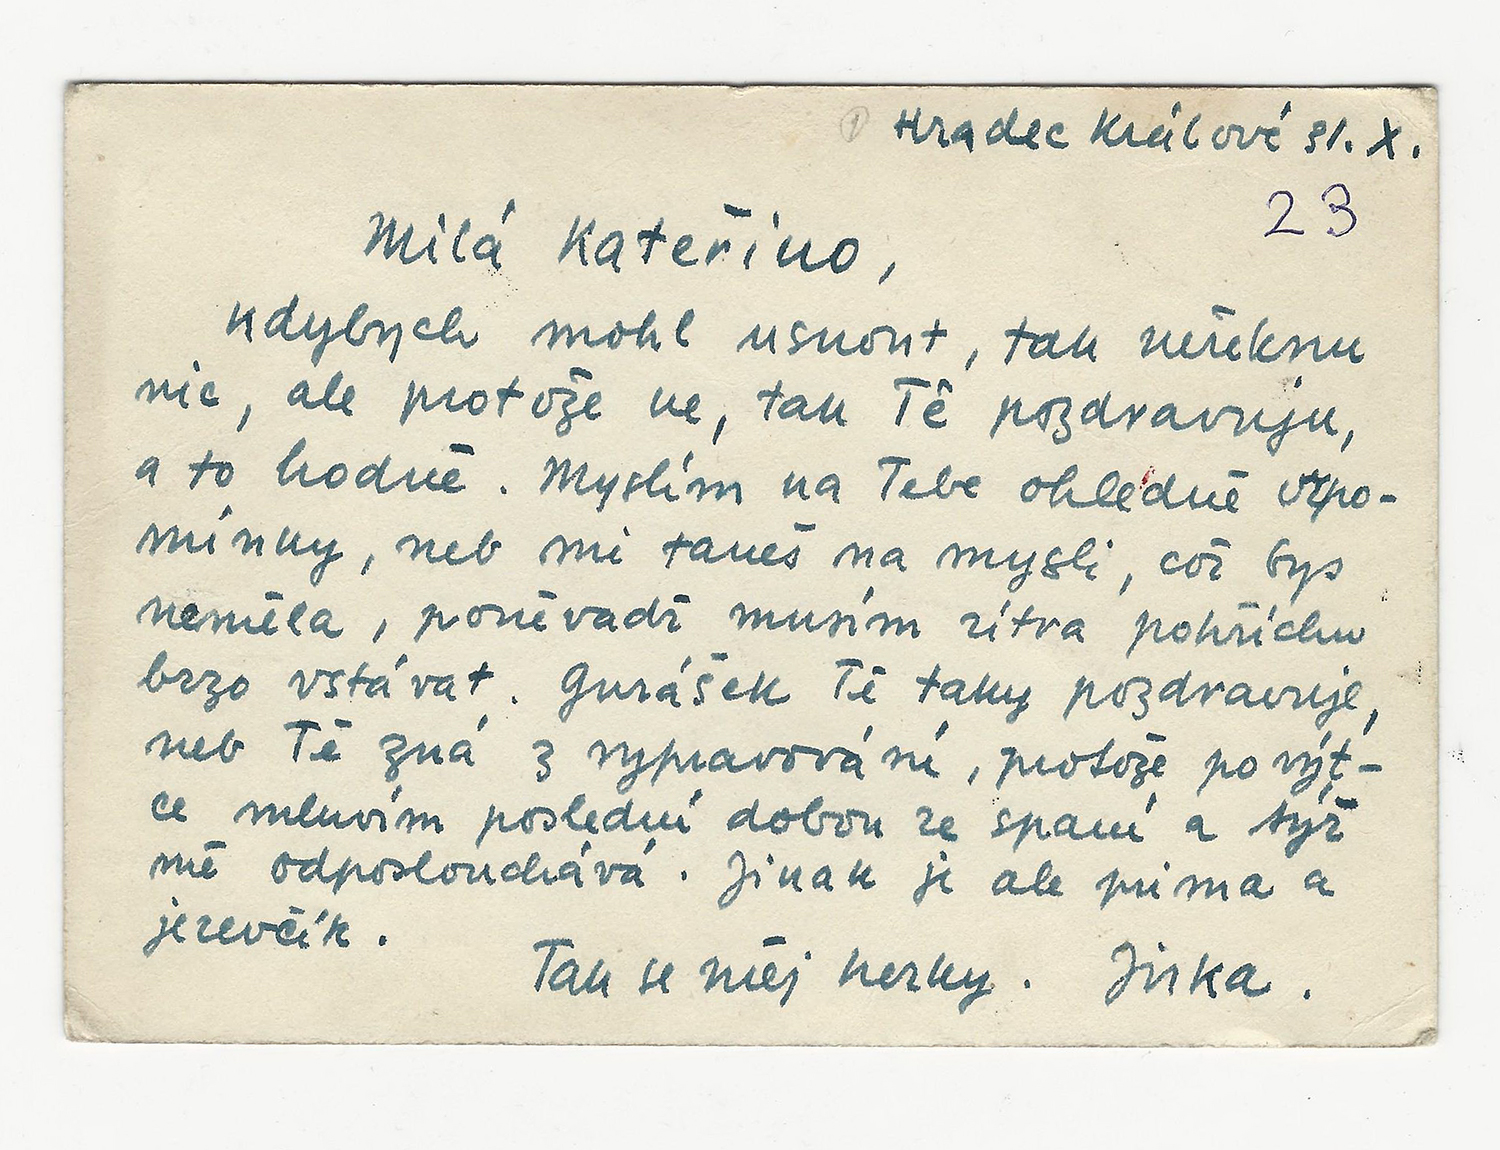 ① Hradec Králové 31. X.
23
Milá Kateřino,
kdybych mohl usnout, tak neřeknu
nic, ale protože ne, tak Tě pozdravuju,
a to hodně. Myslím na Tebe ohledně vzpo-
mínky, neb mi taneš na mysli, což bys
neměla, poněvadž musím zítra pohříchu
brzo vstávat. Gurášek Tě taky pozdravuje,
neb Tě zná z vypravování, protože po výt-
ce mluvím poslední dobou ze spaní a týž
mě odposlouchává. Jinak je ale prima a
jezevčík.
Tak se měj hezky. Jirka.